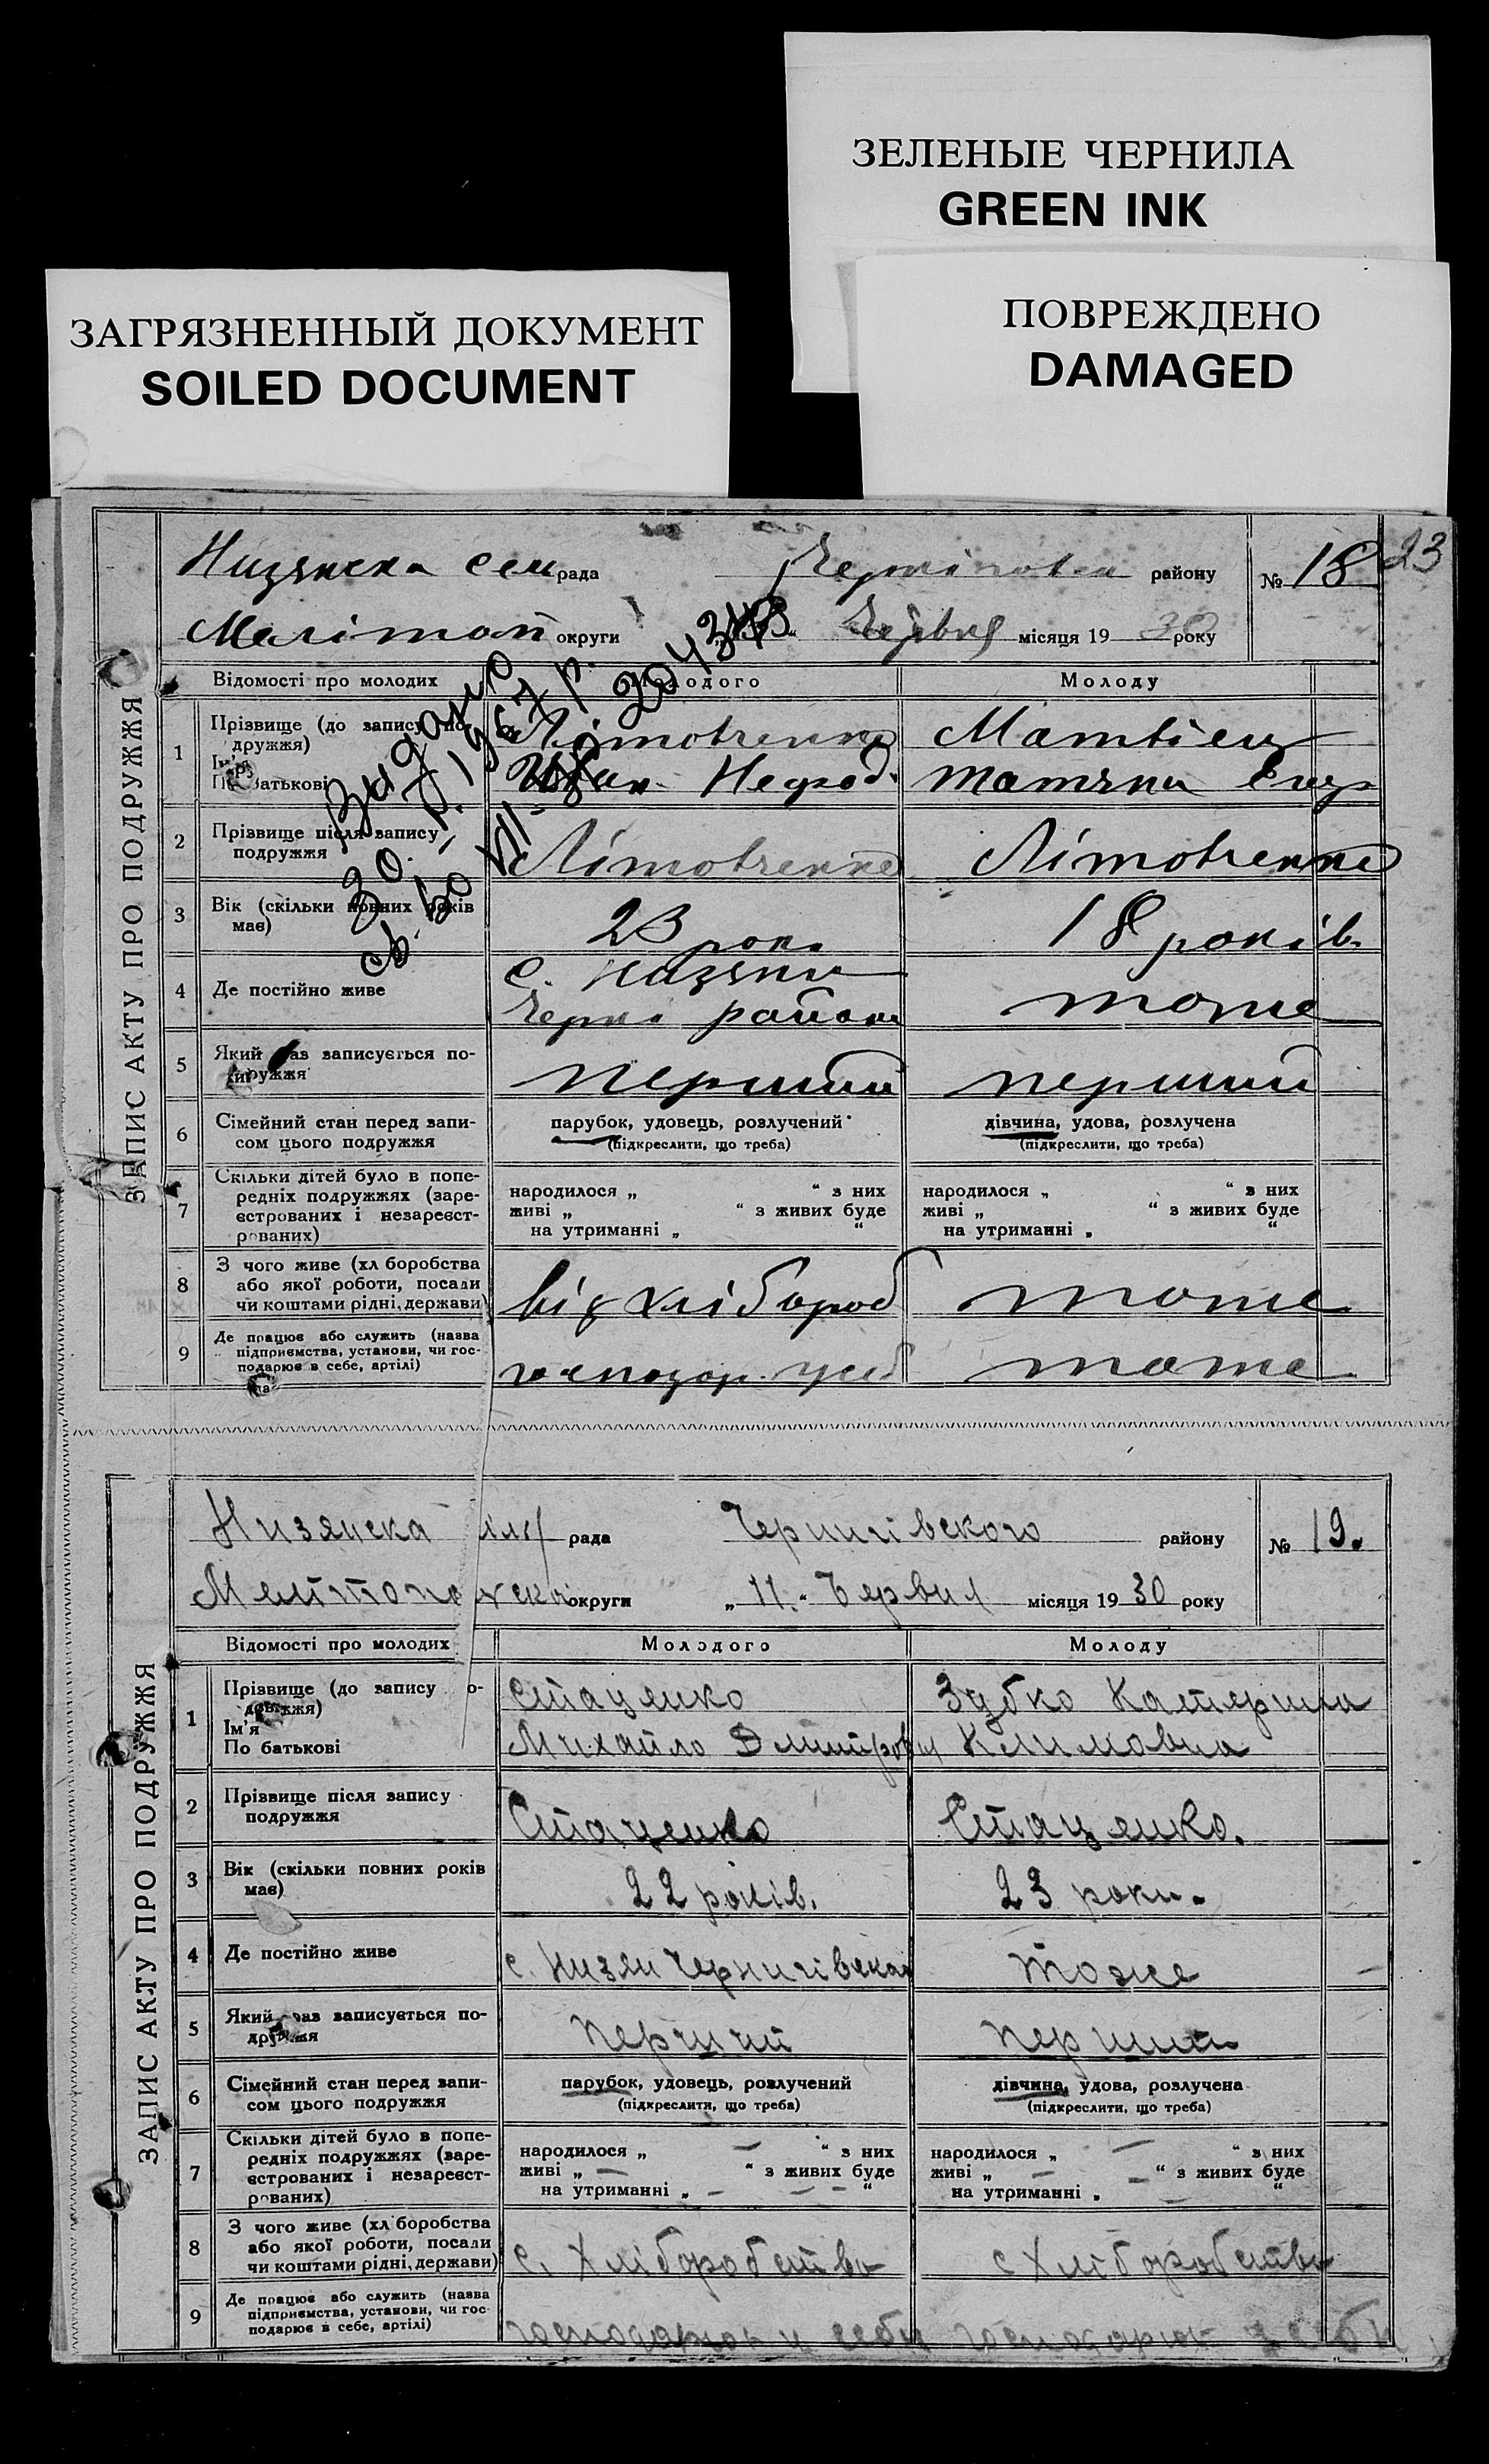 ЗЕЛЕНЫЕ ЧЕРНИЛА
GREEN INK
ЗАГРЯЗНЕННЫЙ ДОКУМЕНТ
SOILED DOCUMENT
ПОВРЕЖДЕНО
DAMAGED
23
ЗАПИС АКТУ ПРО ПОДРУЖЖЯ
Низянска сел рада району № 18
Меліտոп округи Червня місяця 19 30 року
Видано
30. 1967 р.
Відомості про молодих Молодого Молоду
1 Прізвище (до запису подружжя) Літовченко Матвіец
Ім'я
По батькові Іван Татяна
2 Прізвище після запису Літовченко Літовченко
подружжя
3 Вік (скільки повних років 23 роки 18 років
має)
4 Де постійно живе с. Низяни тоже
района
5 Який раз записується по- перший перший
дружжя
6 Сімейний стан перед запи- парубок, удовець, розлучений дівчина, удова, розлучена
сом цього подружжя (підкреслити, що треба) (підкреслити, що треба)
7 Скільки дітей було в попе-
редніх подружжях (заре- народилося „ “ з них народилося „ “ з них
єстрованих і незареєст- живі „ “ з живих буде живі „ “ з живих буде
рованих) на утриманні „ “ на утриманні „ “
8 З чого живе (хліборобства
або якої роботи, посади
чи коштами рідні, держави) від хлібороб тоже
9 Де працює або служить (назва
підприємства, установи, чи гос-
подарює в себе, артілі) господар. тоже
ЗАПИС АКТУ ПРО ПОДРУЖЖЯ
Низянска рада Чернигівского району № 19.
округи „ 11. “ Червня місяця 19 30 року
Відомості про молодих Молодого Молоду
1 Прізвище (до запису по- Стаценко Зубко Катерина
дружжя)
Ім'я
По батькові Михайло Климовна
2 Прізвище після запису Стаценко Стаценко.
подружжя
3 Вік (скільки повних років 22 років. 23 роки.
має)
4 Де постійно живе с. Низяни тоже
5 Який раз записується по- перший перший
дружжя
6 Сімейний стан перед запи- парубок, удовець, розлучений дівчина, удова, розлучена
сом цього подружжя (підкреслити, що треба) (підкреслити, що треба)
7 Скільки дітей було в попе-
редніх подружжях (заре- народилося „ — “ з них народилося „ — “ з них
єстрованих і незареєст- живі „ — “ з живих буде живі „ — “ з живих буде
рованих) на утриманні „ — “ на утриманні „ — “
8 З чого живе (хліборобства
або якої роботи, посади
чи коштами рідні, держави) с. Хліборобства с Хліборобства
9 Де працює або служить (назва
підприємства, установи, чи гос-
подарює в себе, артілі)